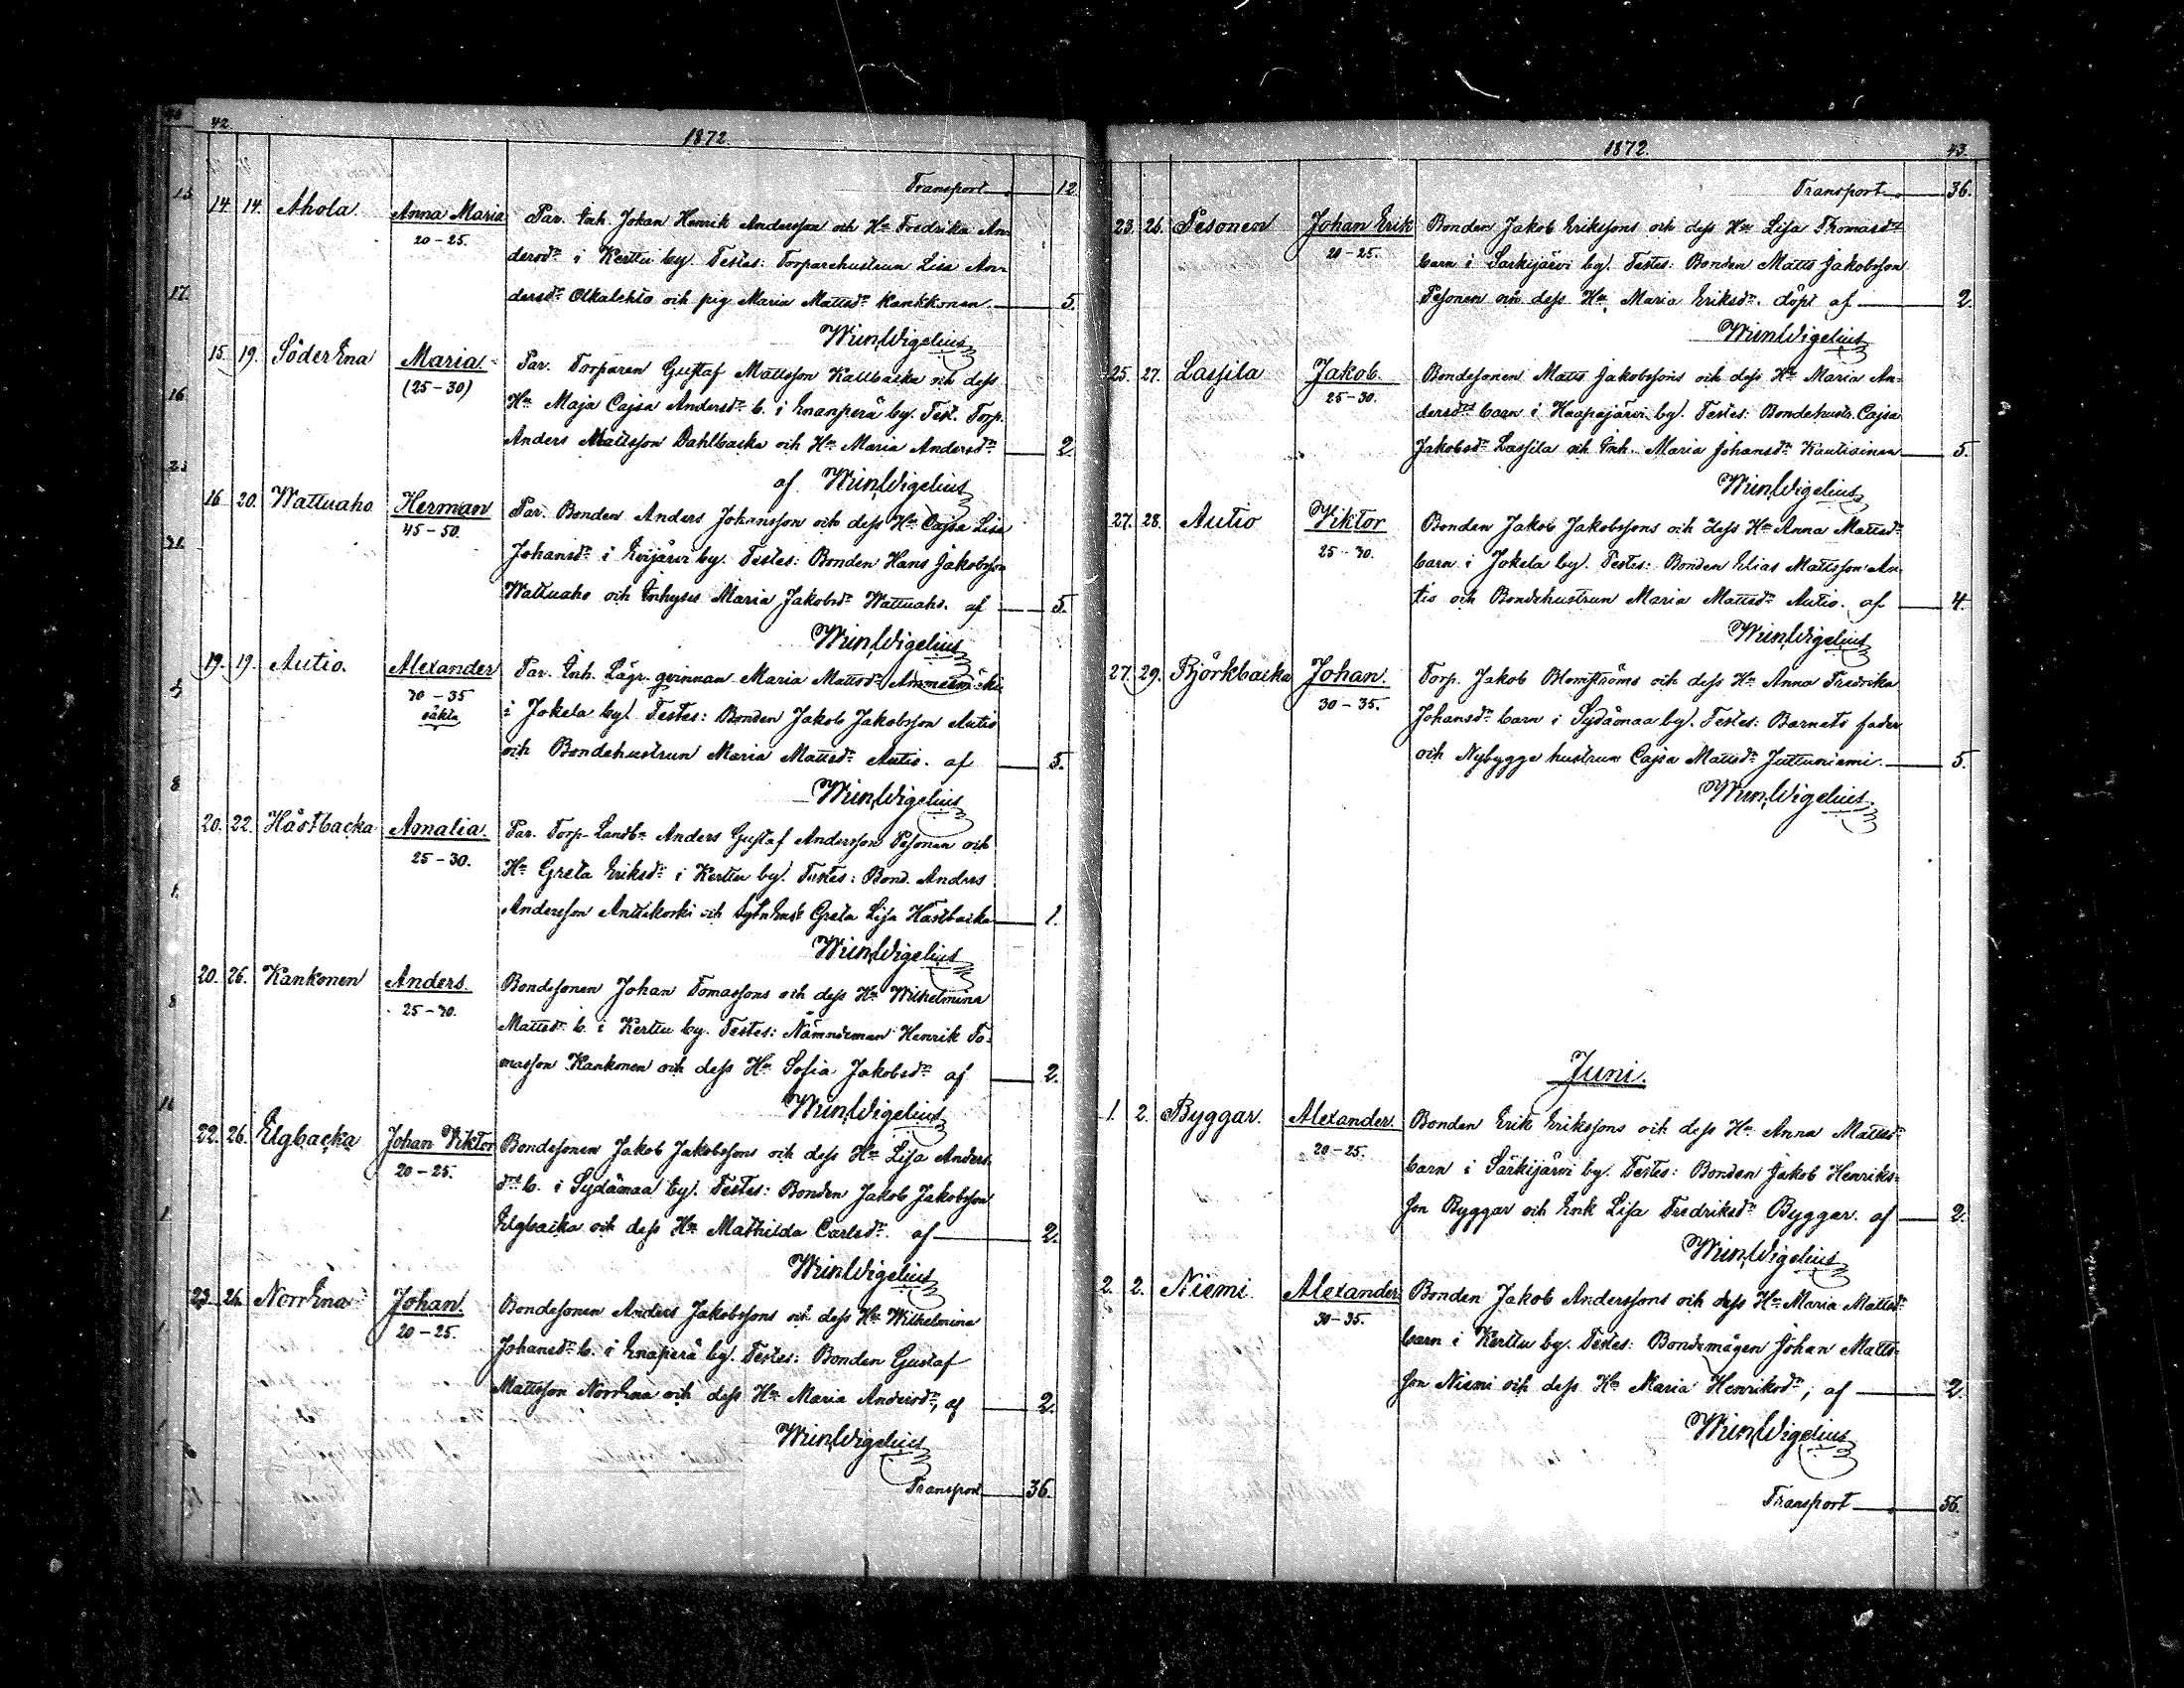 42.
1872.
Transport 12
14. 14. Ahola. Anna Maria Par. Inh. Johan Henrik Andersson och Hu Fredrika An-
20-25. dersdr i Kerttu by. Testes: Torparehustrun Lisa An-
dersdr Olkalehto och pig. Maria Mattsdr Kankkonen. 5.
Wilh. Wigelius
15. 19. Söder Ena Maria. Par. Torparen Gustaf Mattsson Kallbacka och dess
(25-30) Hu Maja Cajsa Andersdr b. i Enanperä by. Test. Torp.
Anders Mattsson Dahlbacka och Hu Maria Andersdr 2
af Wilh. Wigelius
16. 20. Wattuaho Herman Par. Bonden Anders Johansson och dess Hu Cajsa Lisa
45-50. Johansdr i Evijärvi by. Testes: Bonden Hans Jakobsson
Wattuaho och Inhyses Maria Jakobsdr Wattuaho. af 5.
Wilh. Wigelius
19. 19. Autio. Alexander Par. Inh. Lägr. qvinnan Maria Mattsdr Ammesmäki
30-35 i Jokela by. Testes: Bonden Jakob Jakobsson Autio
oäkta och Bondehustrun Maria Mattsdr Autio. af 5.
Wilh. Wigelius
20. 22. Håstbacka Amalia. Par. Torp-Landb. Anders Gustaf Andersson Pesonen och
25-30. Hu Greta Eriksdr i Kerttu by. Testes: Bond. Anders
Andersson Antikoski och Greta Lisa Håstbacka 1.
Wilh. Wigelius
20. 26. Kankonen Anders. Bondesonen Johan Tomassons och dess Hu Wilhelmina
25-30. Mattsdr b. i Kerttu by. Testes: Nämndeman Henrik To-
masson Kankonen och dess Hu Sofia Jakobsdr af 2.
Wilh. Wigelius
22. 26. Elgbacka Johan Viktor Bondesonen Jakob Jakobssons och dess Hu Lisa Anders-
20-25. dr b. i Sydämaa by. Testes: Bonden Jakob Jakobsson
Elgbacka och dess Hu Mathilda Carlsdr. af 2.
Wilh. Wigelius
23. 26. Norr Ena Johan. Bondesonen Anders Jakobssons och dess Hu Wilhelmina
20-25. Johansdr b. i Enaperä by. Testes: Bonden Gustaf
Mattsson Norr Ena och dess Hu Maria Andersdr, af 2.
Wilh. Wigelius
Transport 36.
1872. 43.
Transport 36.
23. 26. Pesonen Johan Erik Bonden Jakob Erikssons och dess Hu Lisa Thomasdrs
20-25. barn i Särkijärvi by. Testes: Bonden Matts Jakobsson
Pesonen och dess Hu Maria Eriksdr. döpt af 2.
Wilh. Wigelius
25. 27. Lassila Jakob. Bondesonen Matts Jakobssons och dess Hu Maria An-
25-30. dersdrs barn i Haapajärvi by. Testes: Bondehustr. Cajsa
Jakobsdr Lassila och Inh. Maria Johansdr Kautiainen 5.
Wilh. Wigelius
27. 28. Autio Viktor Bonden Jakob Jakobssons och dess Hu Anna Mattsdr
25-30. barn i Jokela by. Testes: Bonden Elias Mattsson Au-
tio och Bondehustrun Maria Mattsdr Autio. af 4.
Wilh. Wigelius
27. 29. Björkbacka Johan. Torp. Jakob Blomströms och dess Hu Anna Fredrika
30-35. Johansdr barn i Sydämaa by. Testes: Barnets fader
och Nybygge hustrun Cajsa Mattsdr Juttuniemi. 5.
Wilh. Wigelius.
Juni.
1. 2. Byggar. Alexander. Bonden Erik Erikssons och dess Hu Anna Mattsdr
20-25. barn i Särkijärvi by. Testes: Bonden Jakob Henriks-
son Byggar och Enk. Lisa Fredriksdr Byggar. af 2.
Wilh. Wigelius
2. 2. Niemi. Alexander Bonden Jakob Anderssons och dess Hu Maria Mattsdr
30-35. barn i Kerttu by. Testes: Bondemågen Johan Matts-
son Niemi och dess Hu Maria Henriksdr, af 2.
Wilh. Wigelius
Transport 56.